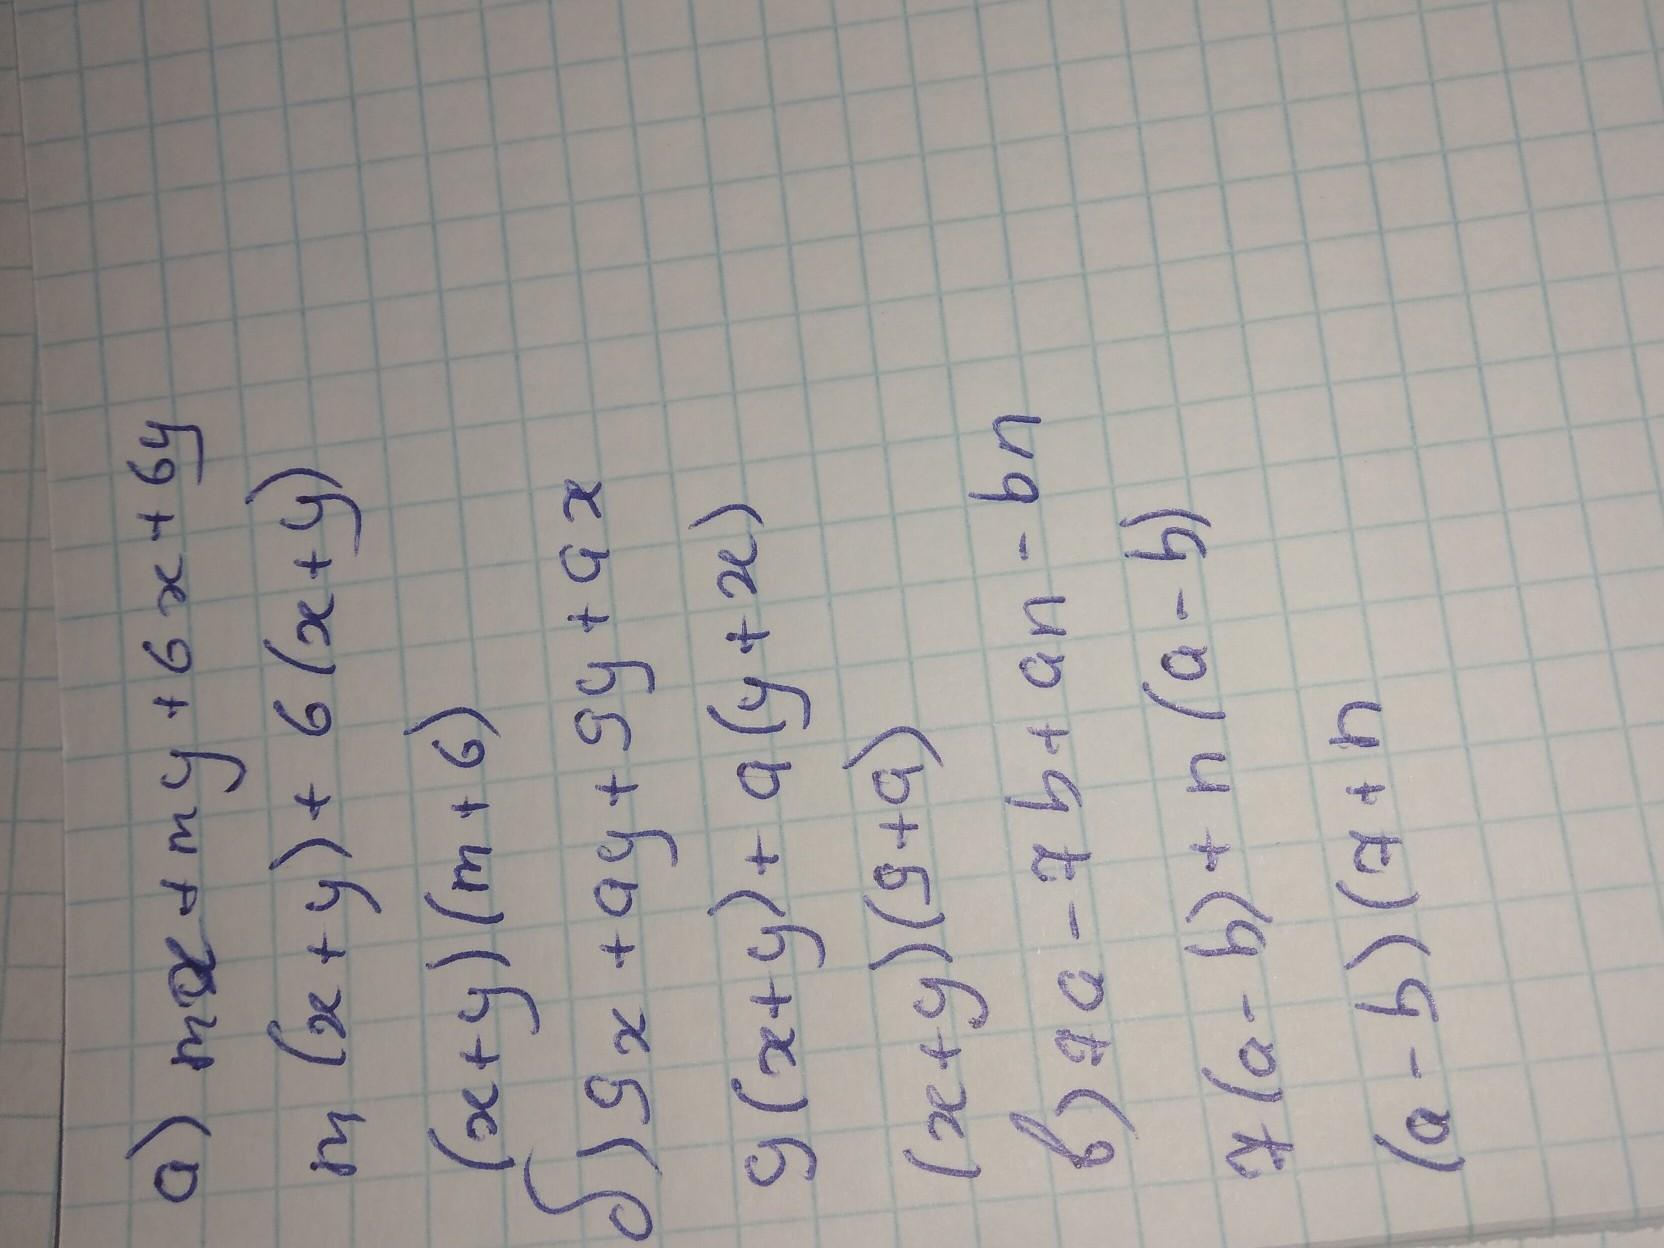 а) mx + my + 6x + 6y
m(x+y) + 6(x+y)
(x+y)(m+6)
б) 9x + ay + 9y + ax
9(x+y) + a(y+x)
(x+y)(9+a)
в) 7a - 7b + an - bn
7(a-b) + n(a-b)
(a-b)(7+n